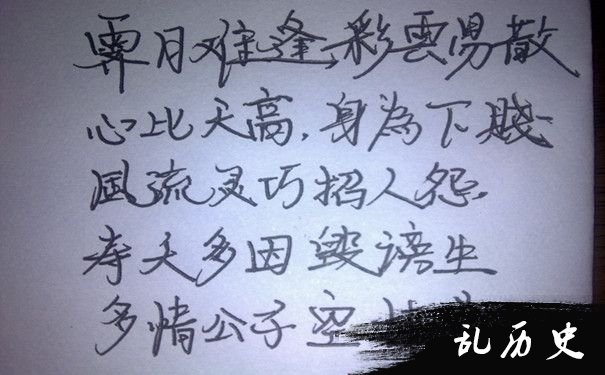 霁月难逢,彩雲易散
心比天高,身為下賤
風流灵巧招人怨.
寿夭多因毁谤生
多情公子空
乱历史